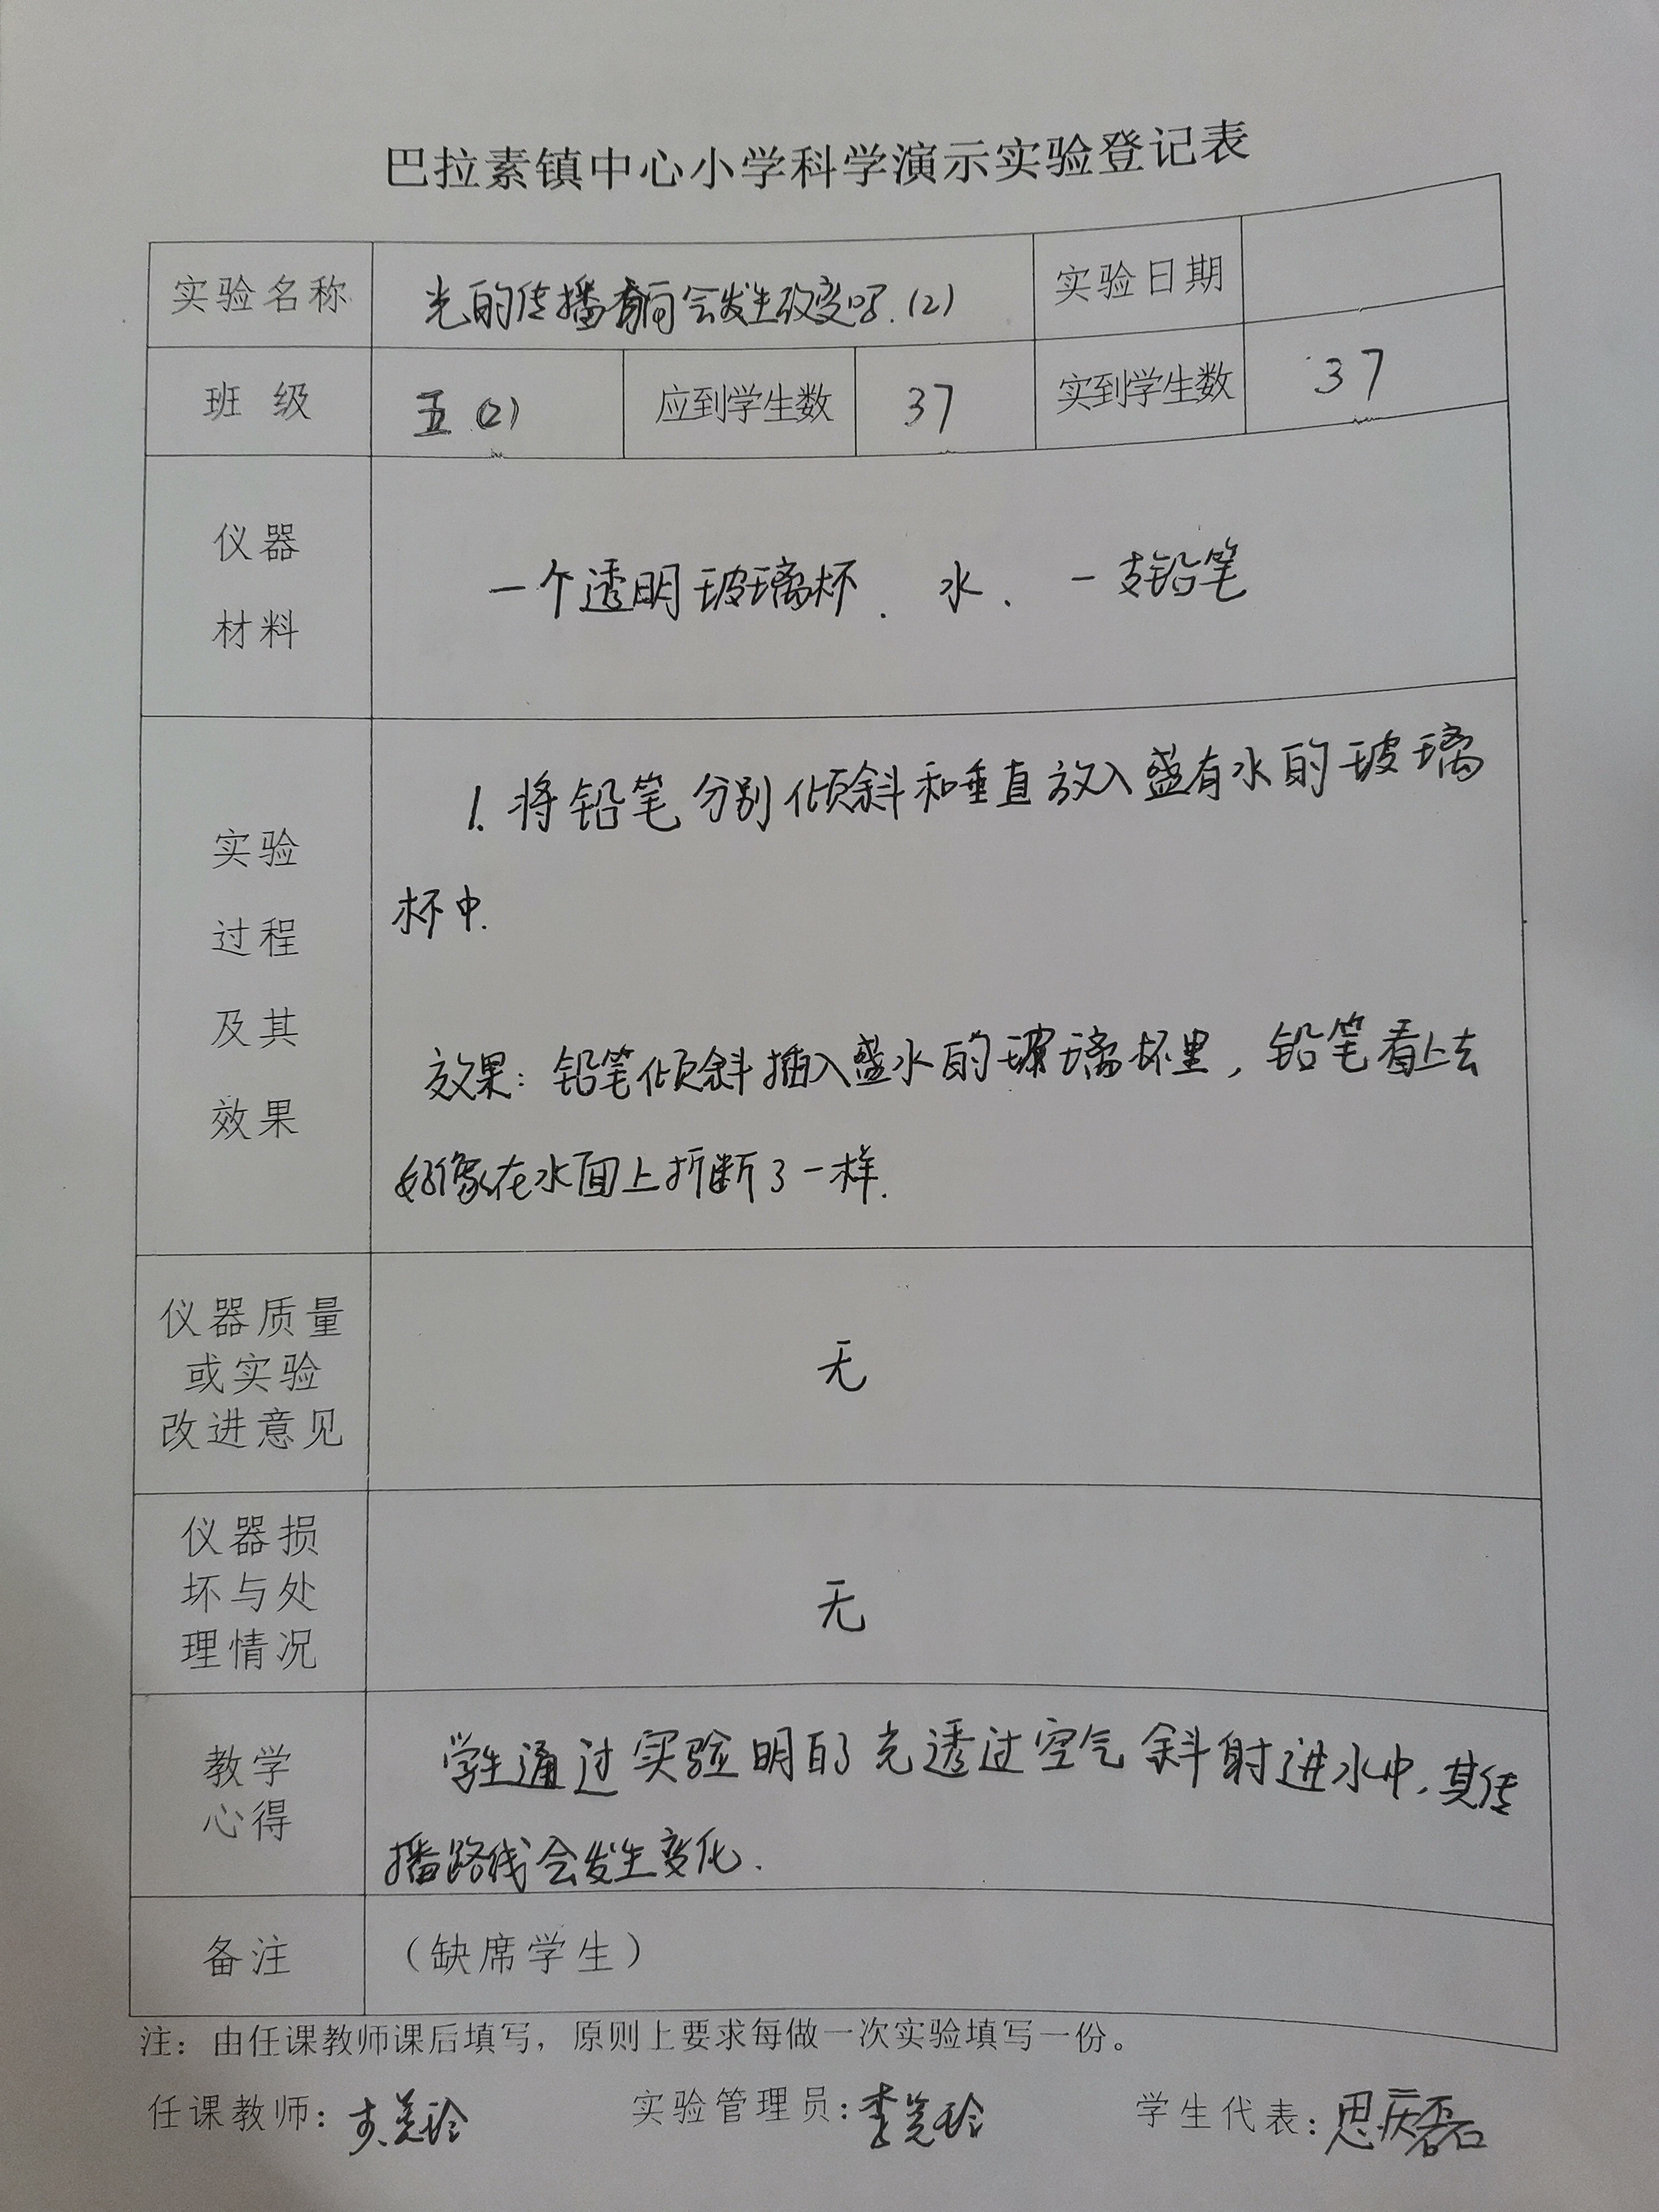 巴拉素镇中心小学科学演示实验登记表
实验名称 光的传播方向会发生改变吗.(2) 实验日期
班 级 五(2) 应到学生数 37 实到学生数 37
仪器
材料
一个透明玻璃杯、水、一支铅笔
实验
过程
及其
效果
1. 将铅笔分别倾斜和垂直放入盛有水的玻璃
杯中.
效果：铅笔倾斜插入盛水的玻璃杯里，铅笔看上去
好像在水面上折断了一样.
仪器质量
或实验
改进意见
无
仪器损
坏与处
理情况
无
教学
心得
学生通过实验明白了光透过空气斜射进水中，其传
播路线会发生变化.
备注 （缺席学生）
注：由任课教师课后填写，原则上要求每做一次实验填写一份。
任课教师： 实验管理员： 学生代表：